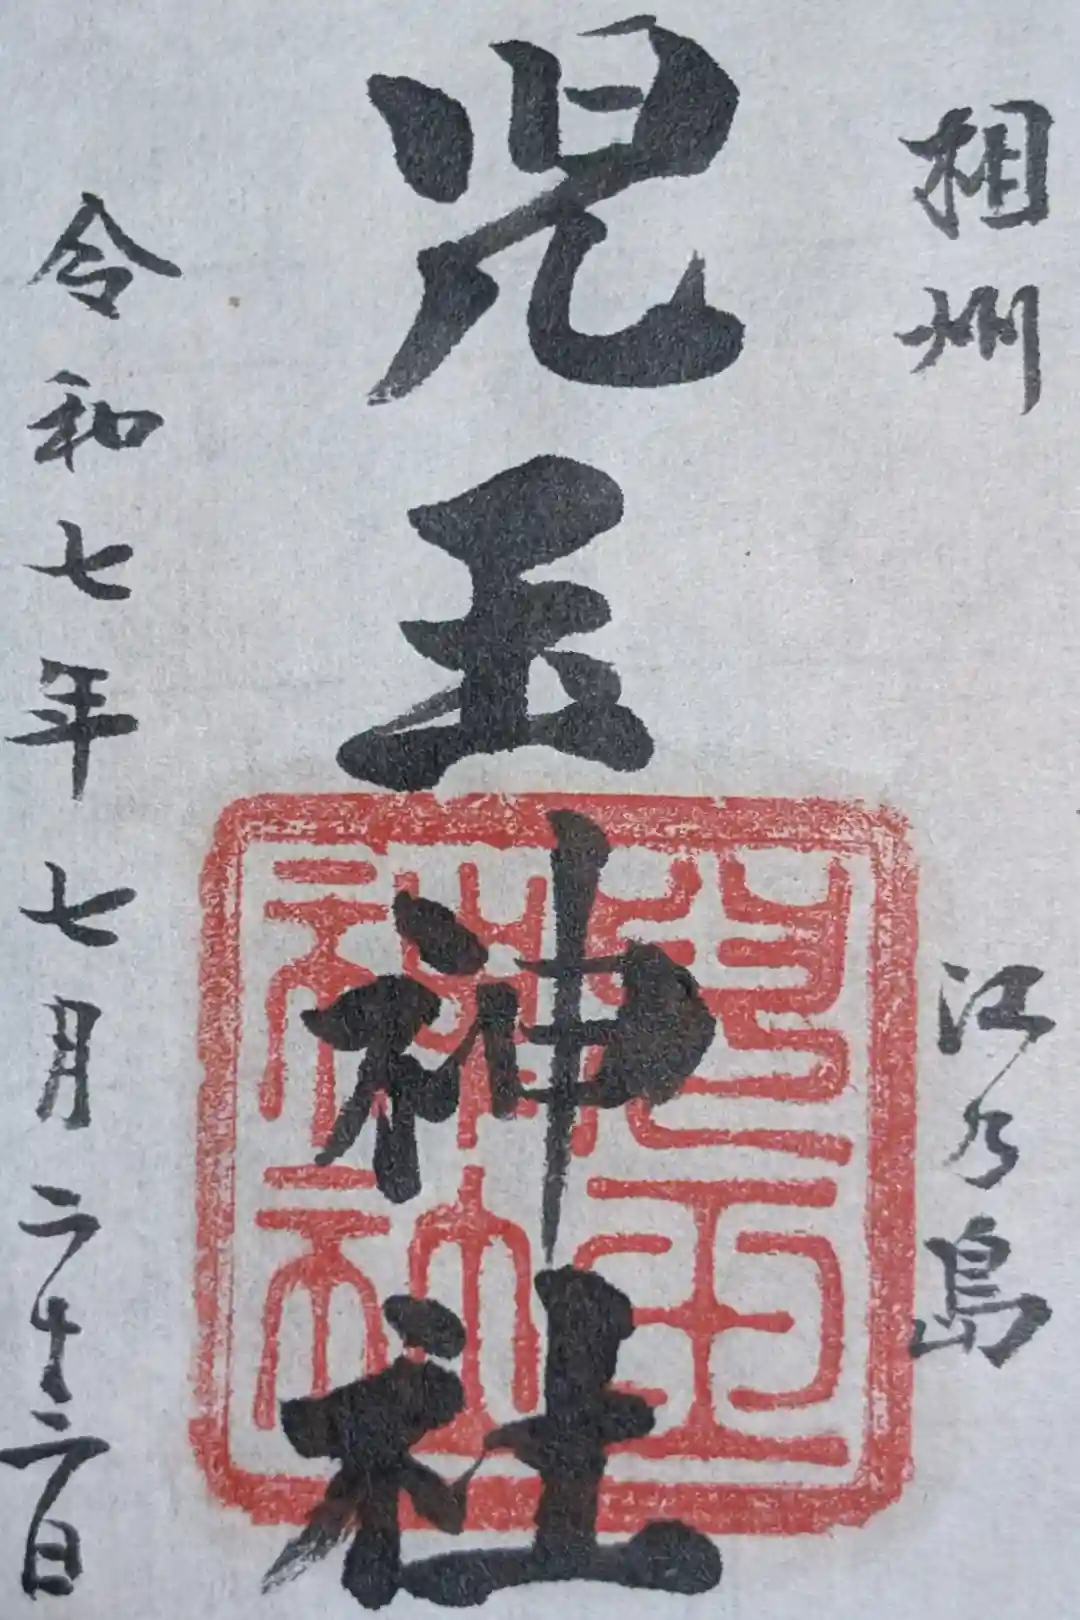 相州 江乃島
児玉神社
児玉神社
令和七年七月二十二日